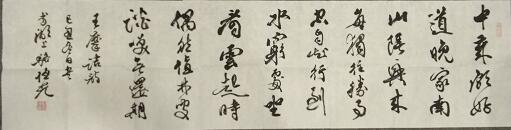 中歲頗好
道晚家南
山陲興來
每獨往勝事
空自知行到
水窮處坐
看雲起時
偶然值林叟
談笑無還期
王摩詰詩
己丑冬日書